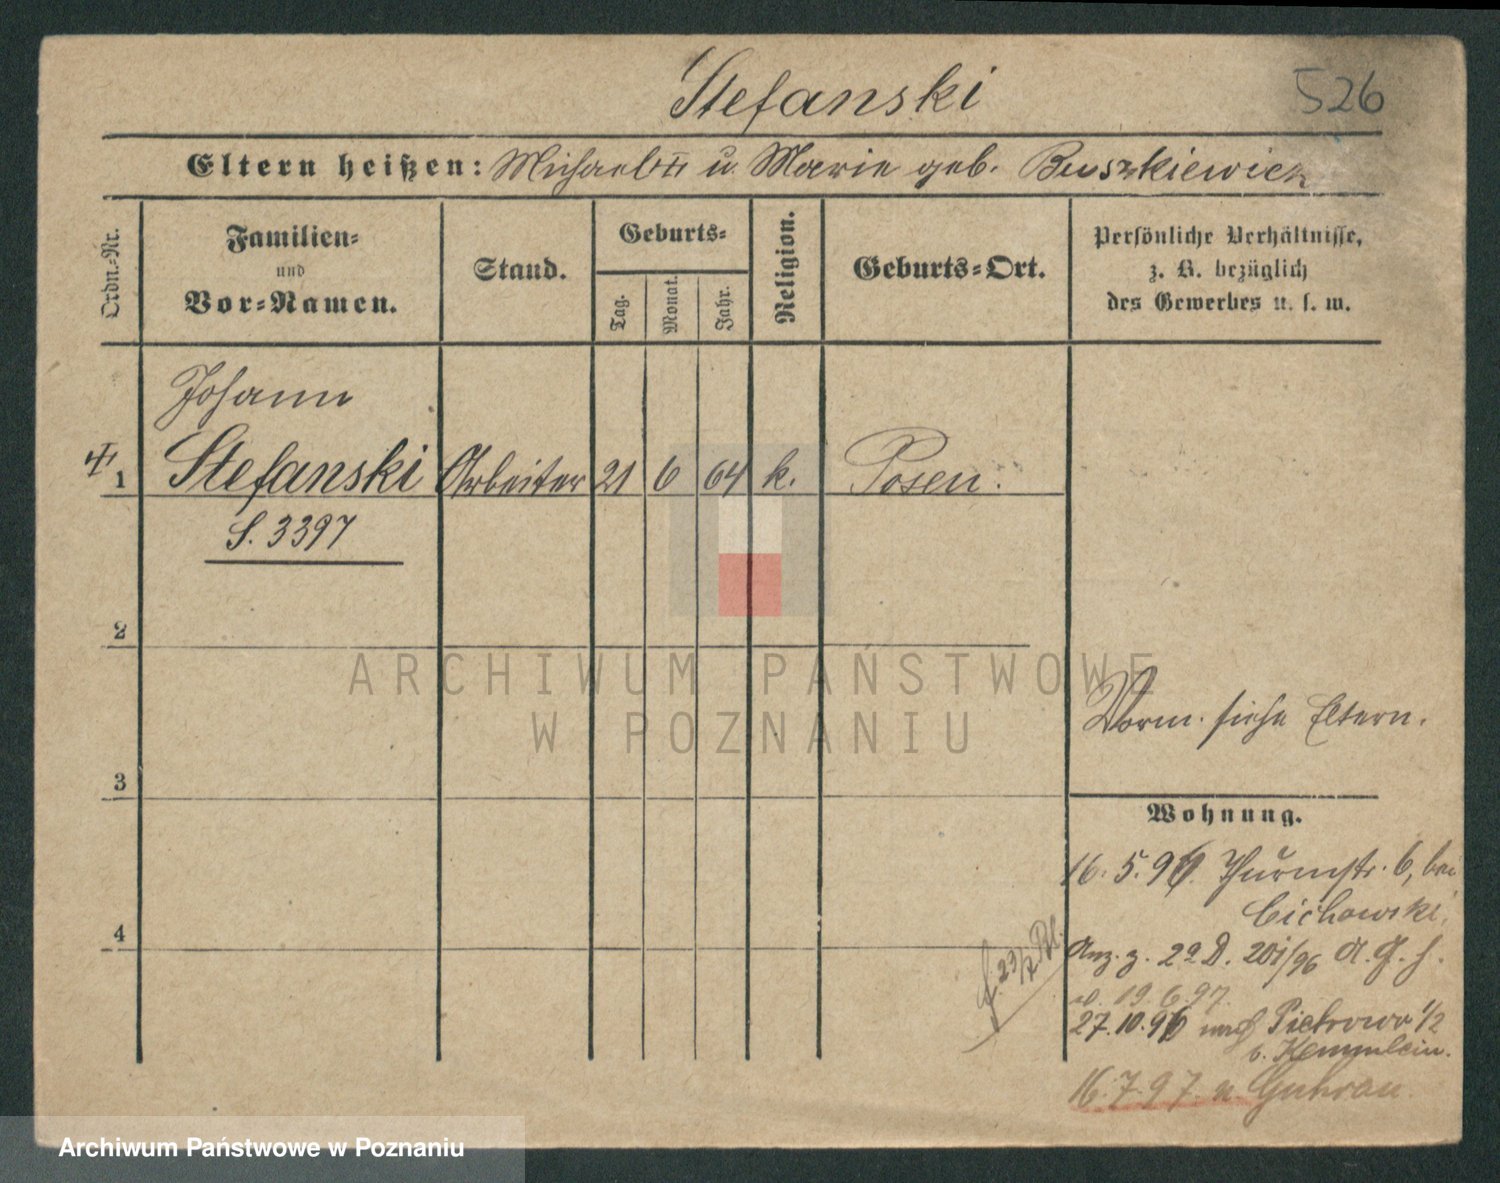 Stefanski
526
Eltern heißen: Michael u. Marie geb. Buszkiewicz
Ordn.-Nr.
Familien- und Vor-Namen.
Stand.
Geburts-
Tag.
Monat.
Jahr.
Religion.
Geburts-Ort.
Persönliche Verhältnisse,
z. B. bezüglich
des Gewerbes u. s. w.
Johann
1 Stefanski Arbeiter 21 6 64 k. Posen.
S. 3397
2
ARCHIWUM PAŃSTWOWE
W POZNANIU
Vorm. siehe Eltern.
3
Wohnung.
16. 5. 96. Thurmstr. 6, bei
Cichowski.
4
Anz. z. 2a D. 201/96 A. G. H.
19. 6. 97.
27. 10. 96 nach Pietrowo 1/2
b. Kemmlein.
16. 7. 97. n. Guhrau.
Archiwum Państwowe w Poznaniu